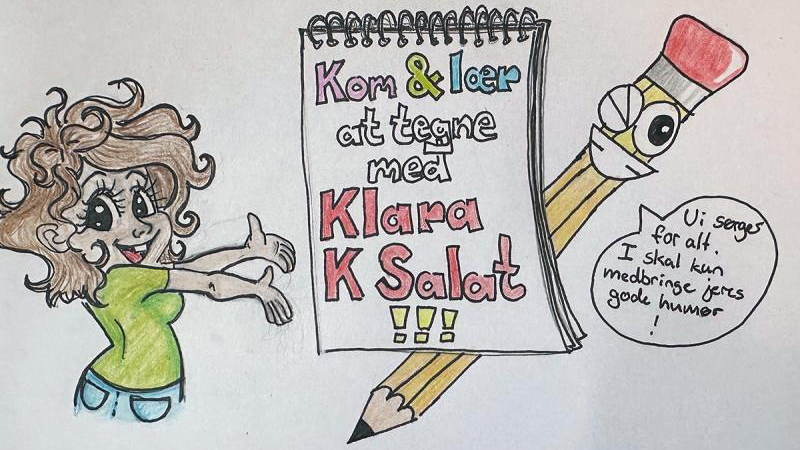 Kom & lær
at tegne
med
Klara
K Salat
!!!
Vi sørger
for alt.
I skal kun
medbringe jeres
gode humør
!